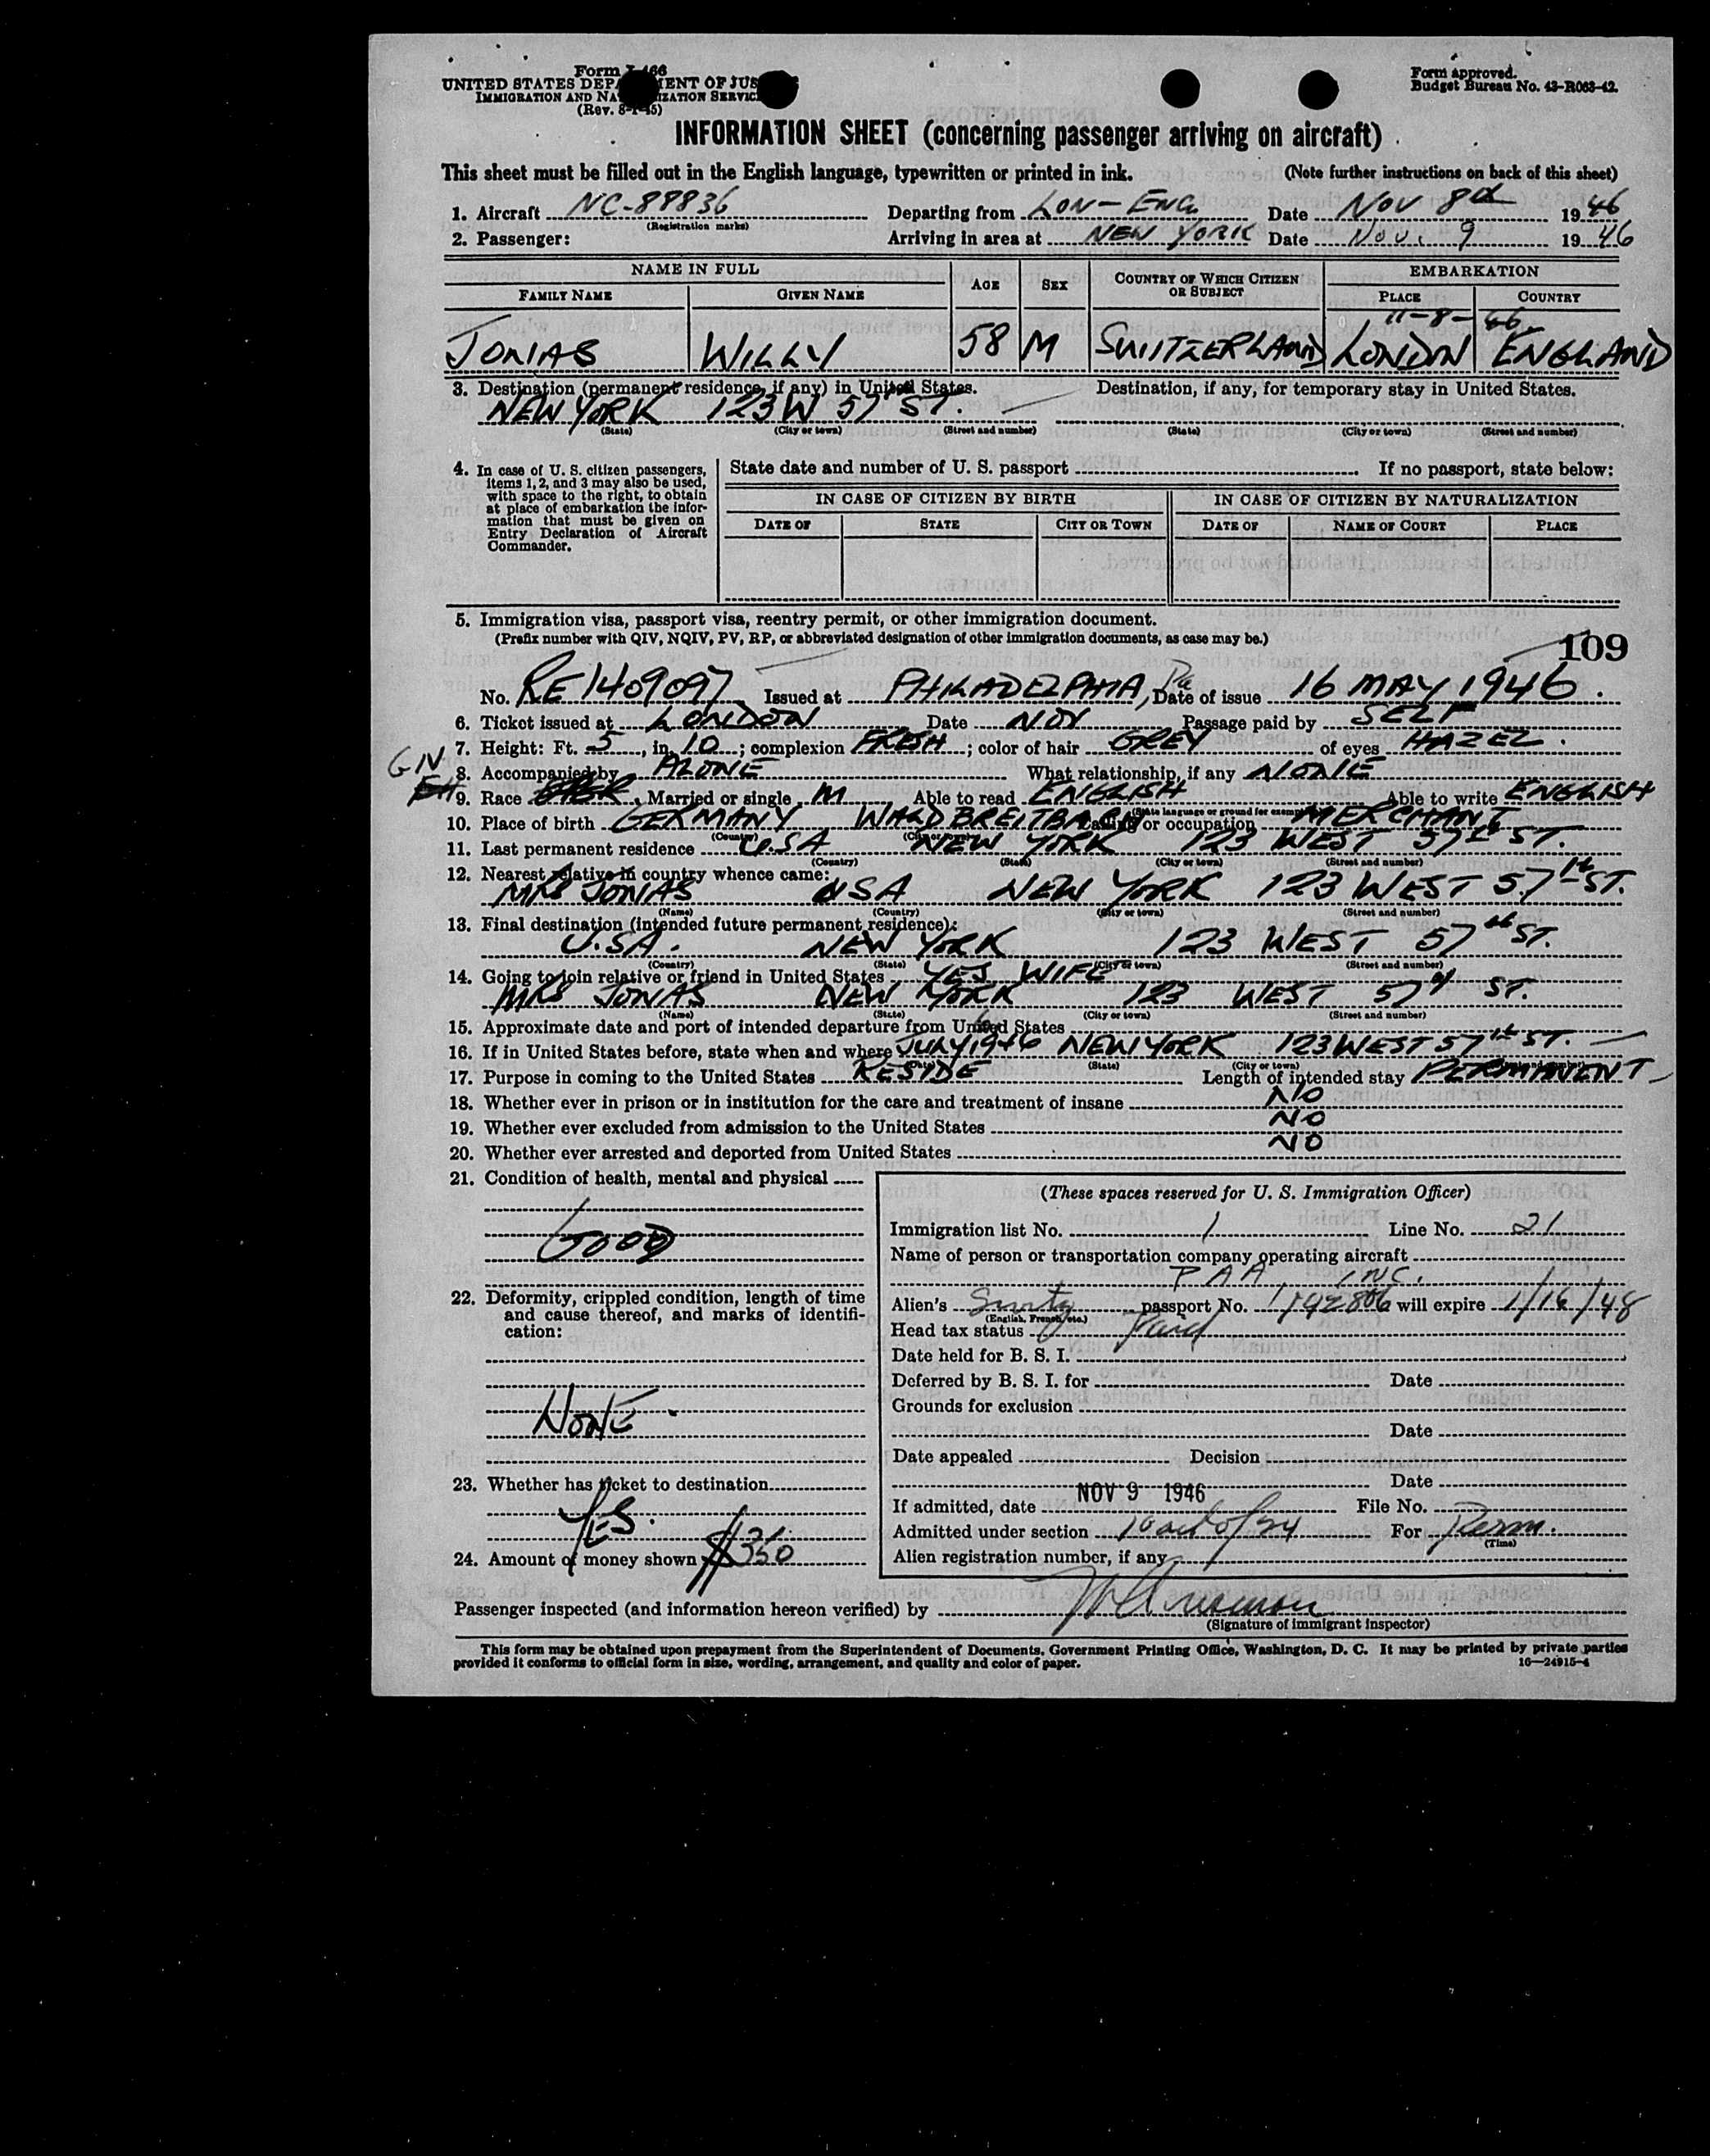 Form I-466
UNITED STATES DEPARTMENT OF JUSTICE
IMMIGRATION AND NATURALIZATION SERVICE
(Rev. 8-1-45)
Form approved.
Budget Bureau No. 43-R063-42.
INFORMATION SHEET (concerning passenger arriving on aircraft)
This sheet must be filled out in the English language, typewritten or printed in ink. (Note further instructions on back of this sheet)
1. Aircraft NC-88836 Departing from LON-ENG. Date NOV 8th 1946
(Registration marks)
2. Passenger: Arriving in area at NEW YORK Date NOV. 9 1946
NAME IN FULL AGE SEX COUNTRY OF WHICH CITIZEN OR SUBJECT EMBARKATION
FAMILY NAME GIVEN NAME PLACE COUNTRY
11-8-46.
JONAS WILLY 58 M SWITZERLAND LONDON ENGLAND
3. Destination (permanent residence, if any) in United States. Destination, if any, for temporary stay in United States.
NEW YORK 123 W 57 ST.
(State) (City or town) (Street and number) (State) (City or town) (Street and number)
4. In case of U. S. citizen passengers, items 1, 2, and 3 may also be used, with space to the right, to obtain at place of embarkation the information that must be given on Entry Declaration of Aircraft Commander.
State date and number of U. S. passport If no passport, state below:
IN CASE OF CITIZEN BY BIRTH IN CASE OF CITIZEN BY NATURALIZATION
DATE OF STATE CITY OR TOWN DATE OF NAME OF COURT PLACE
5. Immigration visa, passport visa, reentry permit, or other immigration document.
(Prefix number with QIV, NQIV, PV, RP, or abbreviated designation of other immigration documents, as case may be.)
109
No. RE1409097 Issued at PHILADELPHIA, Pa Date of issue 16 MAY 1946.
6. Ticket issued at LONDON Date NOV Passage paid by SELF
7. Height: Ft. 5, in. 10; complexion FRESH; color of hair GREY of eyes HAZEL.
8. Accompanied by ALONE What relationship, if any NONE
9. Race Married or single M Able to read ENGLISH Able to write ENGLISH
(State language or ground for exemption)
10. Place of birth GERMANY WALDBREITBACH Calling or occupation MERCHANT
(Country) (City or town)
11. Last permanent residence U.SA NEW YORK 123 WEST 57th ST.
(Country) (State) (City or town) (Street and number)
12. Nearest relative in country whence came:
MRS JONAS USA NEW YORK 123 WEST 57th ST.
(Name) (Country) (City or town) (Street and number)
13. Final destination (intended future permanent residence):
U.SA. NEW YORK 123 WEST 57th ST.
(Country) (State) (City or town) (Street and number)
14. Going to join relative or friend in United States YES WIFE
MRS JONAS NEW YORK 123 WEST 57th ST.
(Name) (State) (City or town) (Street and number)
15. Approximate date and port of intended departure from United States
16. If in United States before, state when and where JULY 1946 NEW YORK 123 WEST 57th ST.
(State) (City or town)
17. Purpose in coming to the United States RESIDE Length of intended stay PERMANENT
18. Whether ever in prison or in institution for the care and treatment of insane NO
19. Whether ever excluded from admission to the United States NO
20. Whether ever arrested and deported from United States NO
21. Condition of health, mental and physical
GOOD
22. Deformity, crippled condition, length of time and cause thereof, and marks of identification:
NONE.
23. Whether has ticket to destination
YES.
24. Amount of money shown $350
(These spaces reserved for U. S. Immigration Officer)
Immigration list No. 1 Line No. 21
Name of person or transportation company operating aircraft
PAA, INC.
Alien's passport No. will expire 1/16/48
(English, French, etc.)
Head tax status Paid
Date held for B. S. I.
Deferred by B. S. I. for Date
Grounds for exclusion
Date
Date appealed Decision
Date
If admitted, date NOV 9 1946 File No.
Admitted under section For Perm.
(Time)
Alien registration number, if any
Passenger inspected (and information hereon verified) by
(Signature of immigrant inspector)
This form may be obtained upon prepayment from the Superintendent of Documents, Government Printing Office, Washington, D. C. It may be printed by private parties
provided it conforms to official form in size, wording, arrangement, and quality and color of paper. 16—24915-4